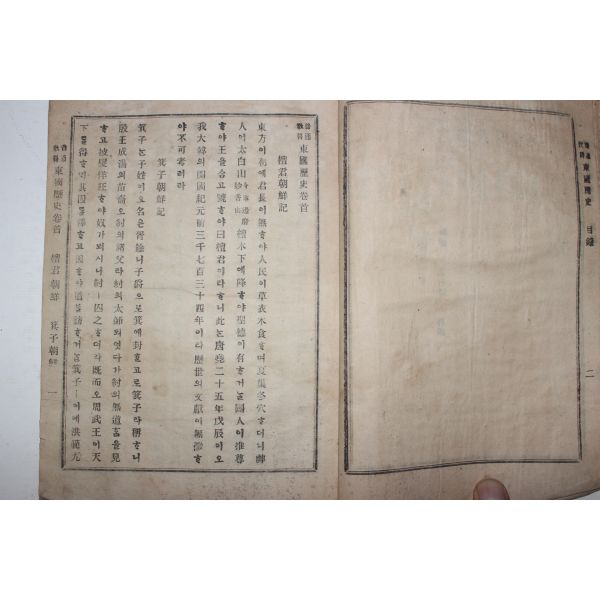 普通教科 東國歷史 目錄 二
普通教科 東國歷史卷首
檀君朝鮮記
東方이 初에 君長이 無ᄒᆞ야 人民이 草衣木食ᄒᆞ며 夏巢冬穴ᄒᆞ더니 神
人이 太白山 檀木下에 降ᄒᆞ야 聖德이 有ᄒᆞ거ᄂᆞᆯ 國人이 推尊
ᄒᆞ야 王을 合고 號ᄒᆞ야 曰 檀君이라 ᄒᆞ니 此ᄂᆞᆫ 唐堯二十五年戊辰이오
我大韓의 開國紀元前三千七百三十四年이다 歷世의 文獻이 無徵ᄒᆞ
야 不可考러라
箕子朝鮮記
箕子ᄂᆞᆫ 子姓이오 名은 胥餘니 子爵으로 箕에 封ᄒᆞᆫ고로 箕子라 稱ᄒᆞ니
殷王成湯의 苗裔오 紂의 諸父라 紂의 太師되엿다가 紂의 無道홈을 見
ᄒᆞ고 被髮佯狂ᄒᆞ야 奴가 되시니 紂ㅣ 囚之ᄒᆞ더라 旣而오 周武王이 天
下를 得ᄒᆞᆷ의 其囚를 釋ᄒᆞ고 因ᄒᆞ야 道를 訪ᄒᆞ거ᄂᆞᆯ 箕子ㅣ 이에 洪範九
普通教科 東國歷史卷首 檀君朝鮮 箕子朝鮮 一